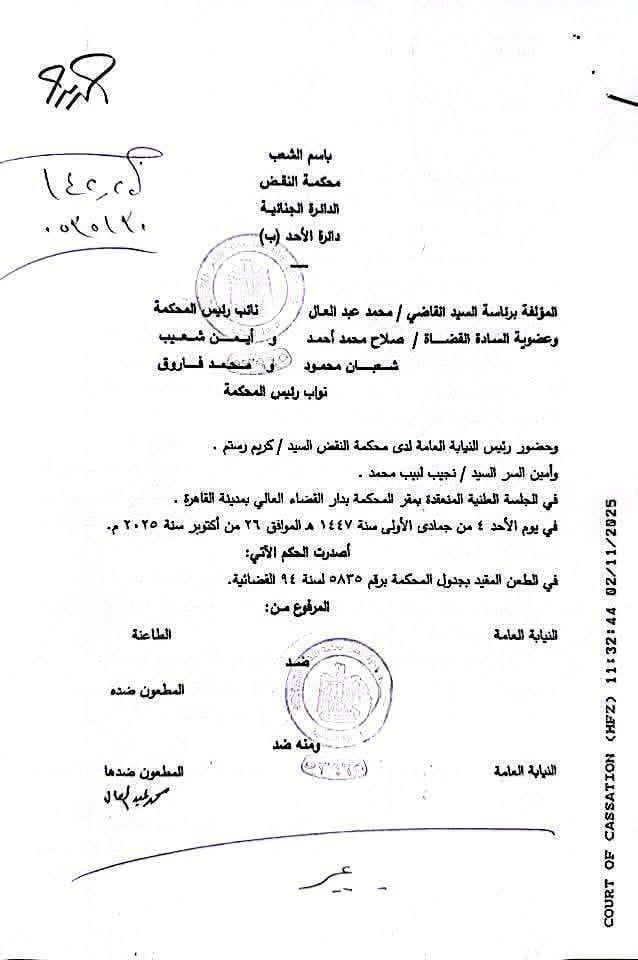 باسم الشعب
محكمة النقض
الدائرة الجنائية
دائرة الأحد (ب)
المؤلفة برئاسة السيد القاضي / محمد عبد العال نائب رئيس المحكمة
وعضوية السادة القضاة / صلاح محمد أحمد و أيمن شعيب
شعبان محمود و محمد فاروق
نواب رئيس المحكمة
وحضور رئيس النيابة العامة لدى محكمة النقض السيد / كريم رستم .
وأمين السر السيد / نجيب لبيب محمد .
في الجلسة العلنية المنعقدة بمقر المحكمة بدار القضاء العالي بمدينة القاهرة .
في يوم الأحد ٤ من جمادى الأولى سنة ١٤٤٧ هـ الموافق ٢٦ من أكتوبر سنة ٢٠٢٥ م.
أصدرت الحكم الآتي:
في الطعن المقيد بجدول المحكمة برقم ٥٨٣٥ لسنة ٩٤ القضائية.
المرفوع من:
النيابة العامة الطاعنة
ضد
المطعون ضده
ومنه ضد
النيابة العامة المطعون ضدها
COURT OF CASSATION (MFZ) 11:32:44 02/11/2025